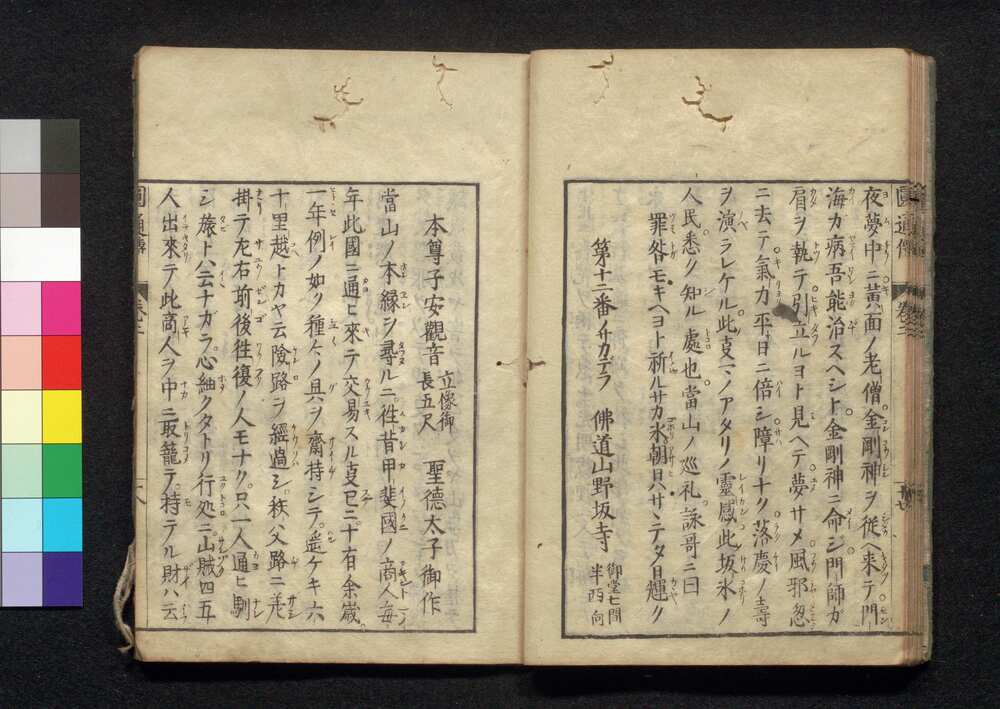 夜夢中ニ黄面ノ老僧金剛神ヲ従ヘ来テ門
海カ病吾能治スヘシト金剛神ニ命シ門師カ
肩ヲ執テ引立ルヨト見ヘテ夢サメ風邪忽
ニ去テ氣力平日ニ倍シ障リナク落慶ノ壽
ヲ演ラレケル此支アノアタリノ靈感此坂氷ノ
人民悉ク知ル處也當山ノ巡礼詠哥ニ曰
罪咎モキヘヨト祈ルサカ氷朝日ハサヽテタ日輝ク
第十二番ノサカデラ 佛道山野坂寺 御堂七間半西向
本尊子安觀音 立像御長五尺 聖德太子御作
當山ノ本縁ヲ尋ルニ往昔甲斐國ノ商人毎
年此國ニ通ヒ來テ交易スル支已ニ十有余歳
一年例ノ如ク種々ノ具ヲ齎持シテ遥ケキ六
十里越トカヤ云險路ヲ經過シ秩父路ニ差
掛テ左右前後徃復ノ人モナク只一人通ヒ馴
シ旅トハ云ナガラ心細クタトリ行処ニ山賊四五
人出來テ此商人ヲ中ニ取籠テ持テル財ハ云